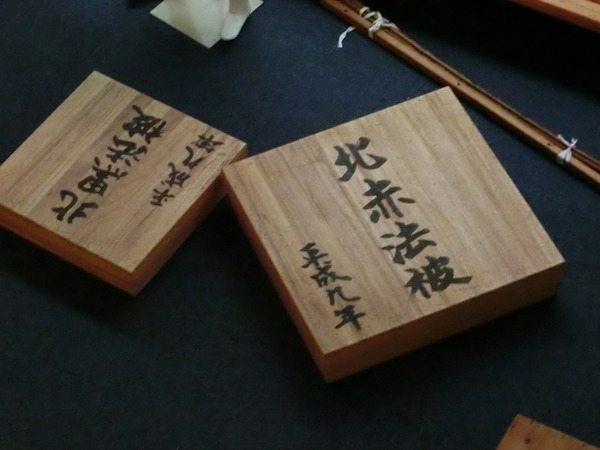 北黒法被
平成九年
北赤法被
平成九年